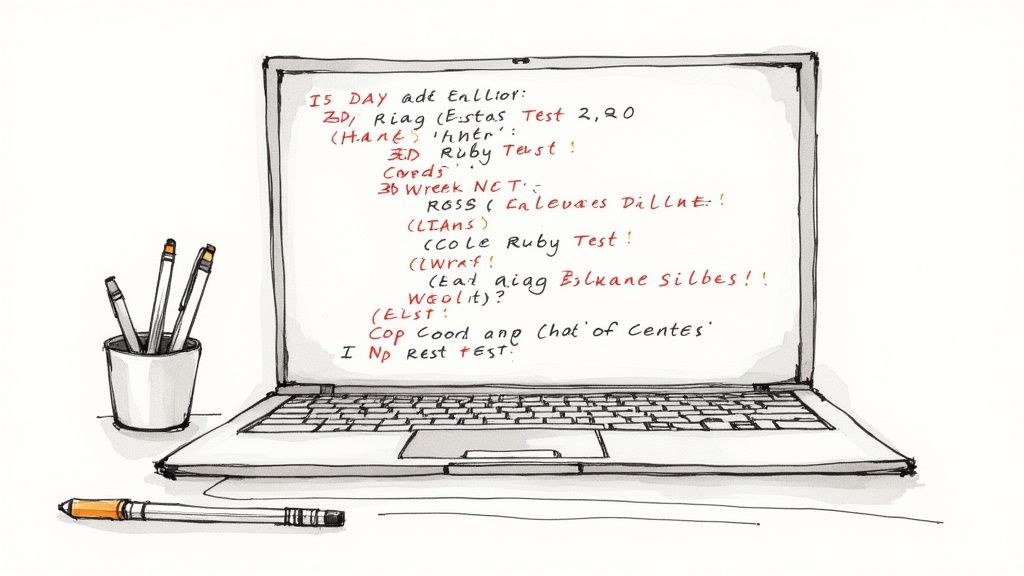 IS DAY adE Enllior:
ZD, Riag (Estas Test 2,20
(Hant) 'hntr':
ZD Ruby Teust!
Coreds'
3D Wreek NCT:
ROSS ( Enleuaes Dillnt!
(LIAns)
(COLE Ruby Test!
(Wraf!
(Eat aiag Bilkane Silbes!!
Wedlit)?
(Elst!
Cop Coord ang Chat'of Centes'
I Np Rest tEST.